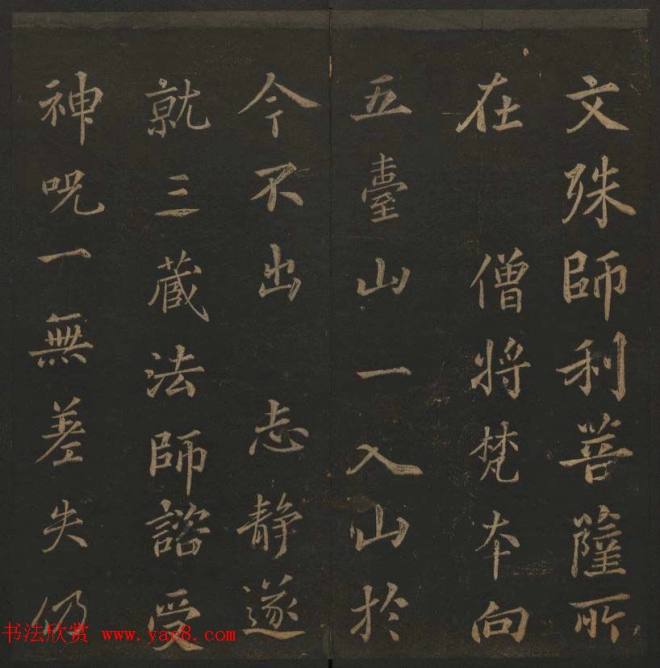 文殊師利菩薩所
在 僧將梵本向
五臺山一入山於
今不出 志靜遂
就三藏法師諮受
神呪一無差失仍
书法欣赏 www.yac8.com